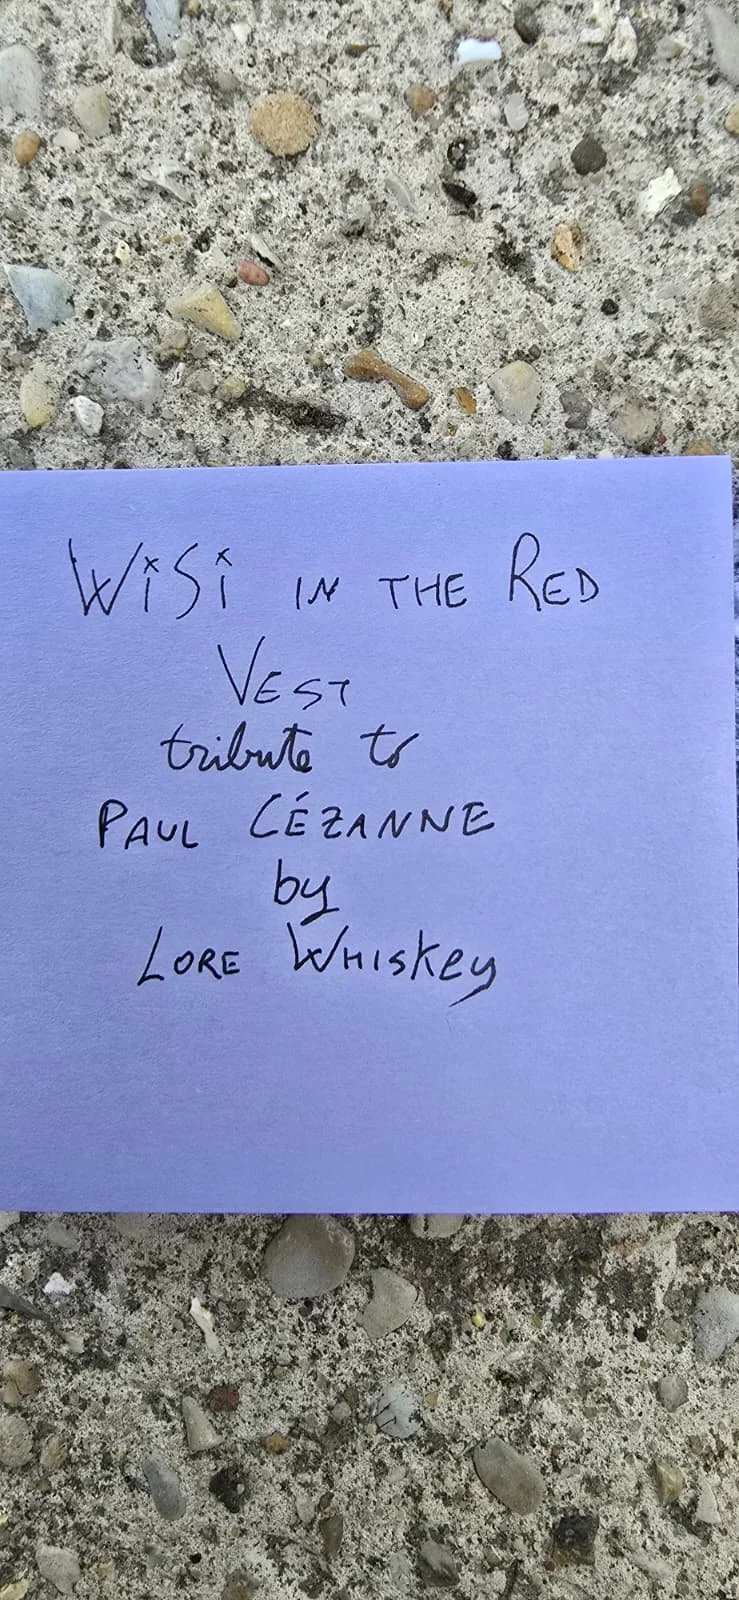 WiSi IN THE RED
VEST
tribute to
PAUL CÉZANNE
by
LORE WHISKEY